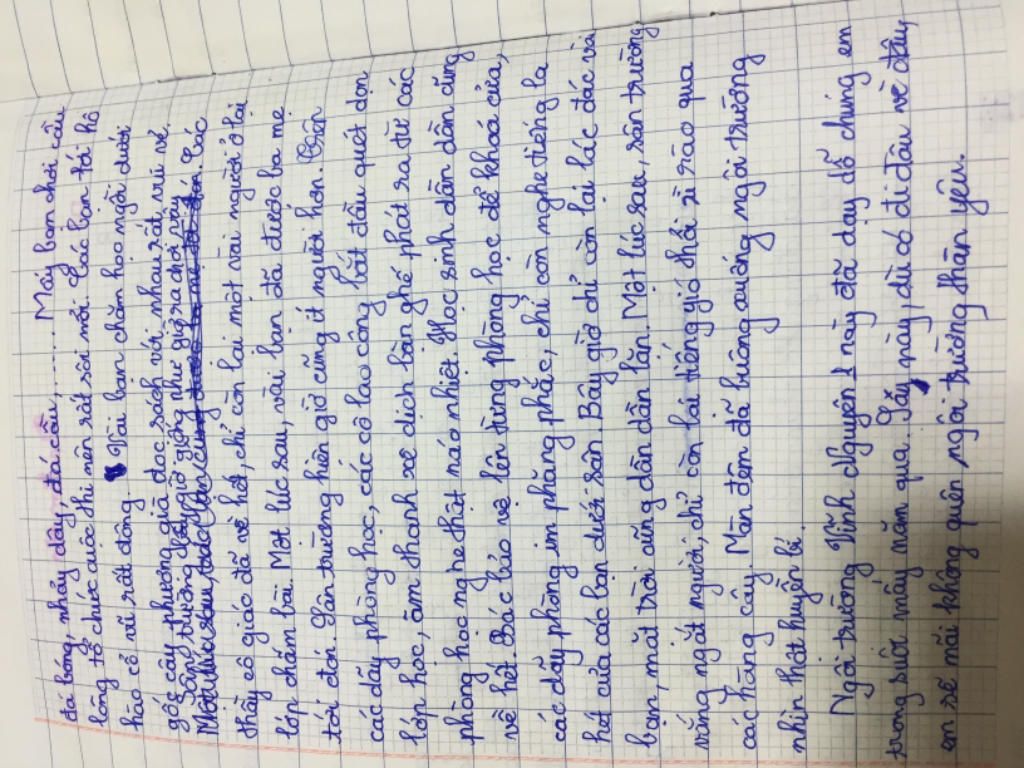 đá bóng, nhảy dây, đá cầu,....... Mấy bạn chơi cầu
lông tổ chức cuộc thi nên rất sôi nổi. Các bạn tới hô
hào cổ vũ rất đông. Vài bạn chăm học ngồi dưới
gốc cây phượng già đọc sách với nhau rất vui vẻ.
Sân trường bây giờ giống như giờ ra chơi vậy.
Một lúc sau, Các
thầy cô giáo đã về hết, chỉ còn lại một vài người ở lại
lớp chấm bài. Một lúc sau, vài bạn đã được ba mẹ
tới đón. Sân trường hiện giờ cũng ít người hơn. Trên
các dãy phòng học, các cô lao công bắt đầu quét dọn
lớp học, âm thanh xê dịch bàn ghế phát ra từ các
phòng học nghe thật náo nhiệt. Học sinh dần dần cũng
về hết. Bác bảo vệ lên từng phòng học để khoá cửa,
các dãy phòng im phăng phắc, chỉ còn nghe tiếng la
hét của các bạn dưới sân. Bây giờ chỉ còn lại lác đác vài
bạn, mặt trời cũng dần dần lặn. Một lúc sau, sân trường
vắng ngắt người, chỉ còn lại tiếng gió thổi rì rào qua
các hàng cây. Màn đêm đã buông xuống ngôi trường
nhìn thật huyền bí.
Ngôi trường Vĩnh Nguyên 1 này đã dạy dỗ chúng em
trong suốt mấy năm qua. Sau này, dù có đi đâu về đâu,
em sẽ mãi không quên ngôi trường thân yêu.